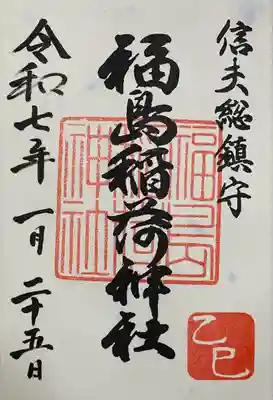 信夫総鎮守
福島稲荷神社
福島稲荷神社
乙巳
令和七年 一月 二十五日